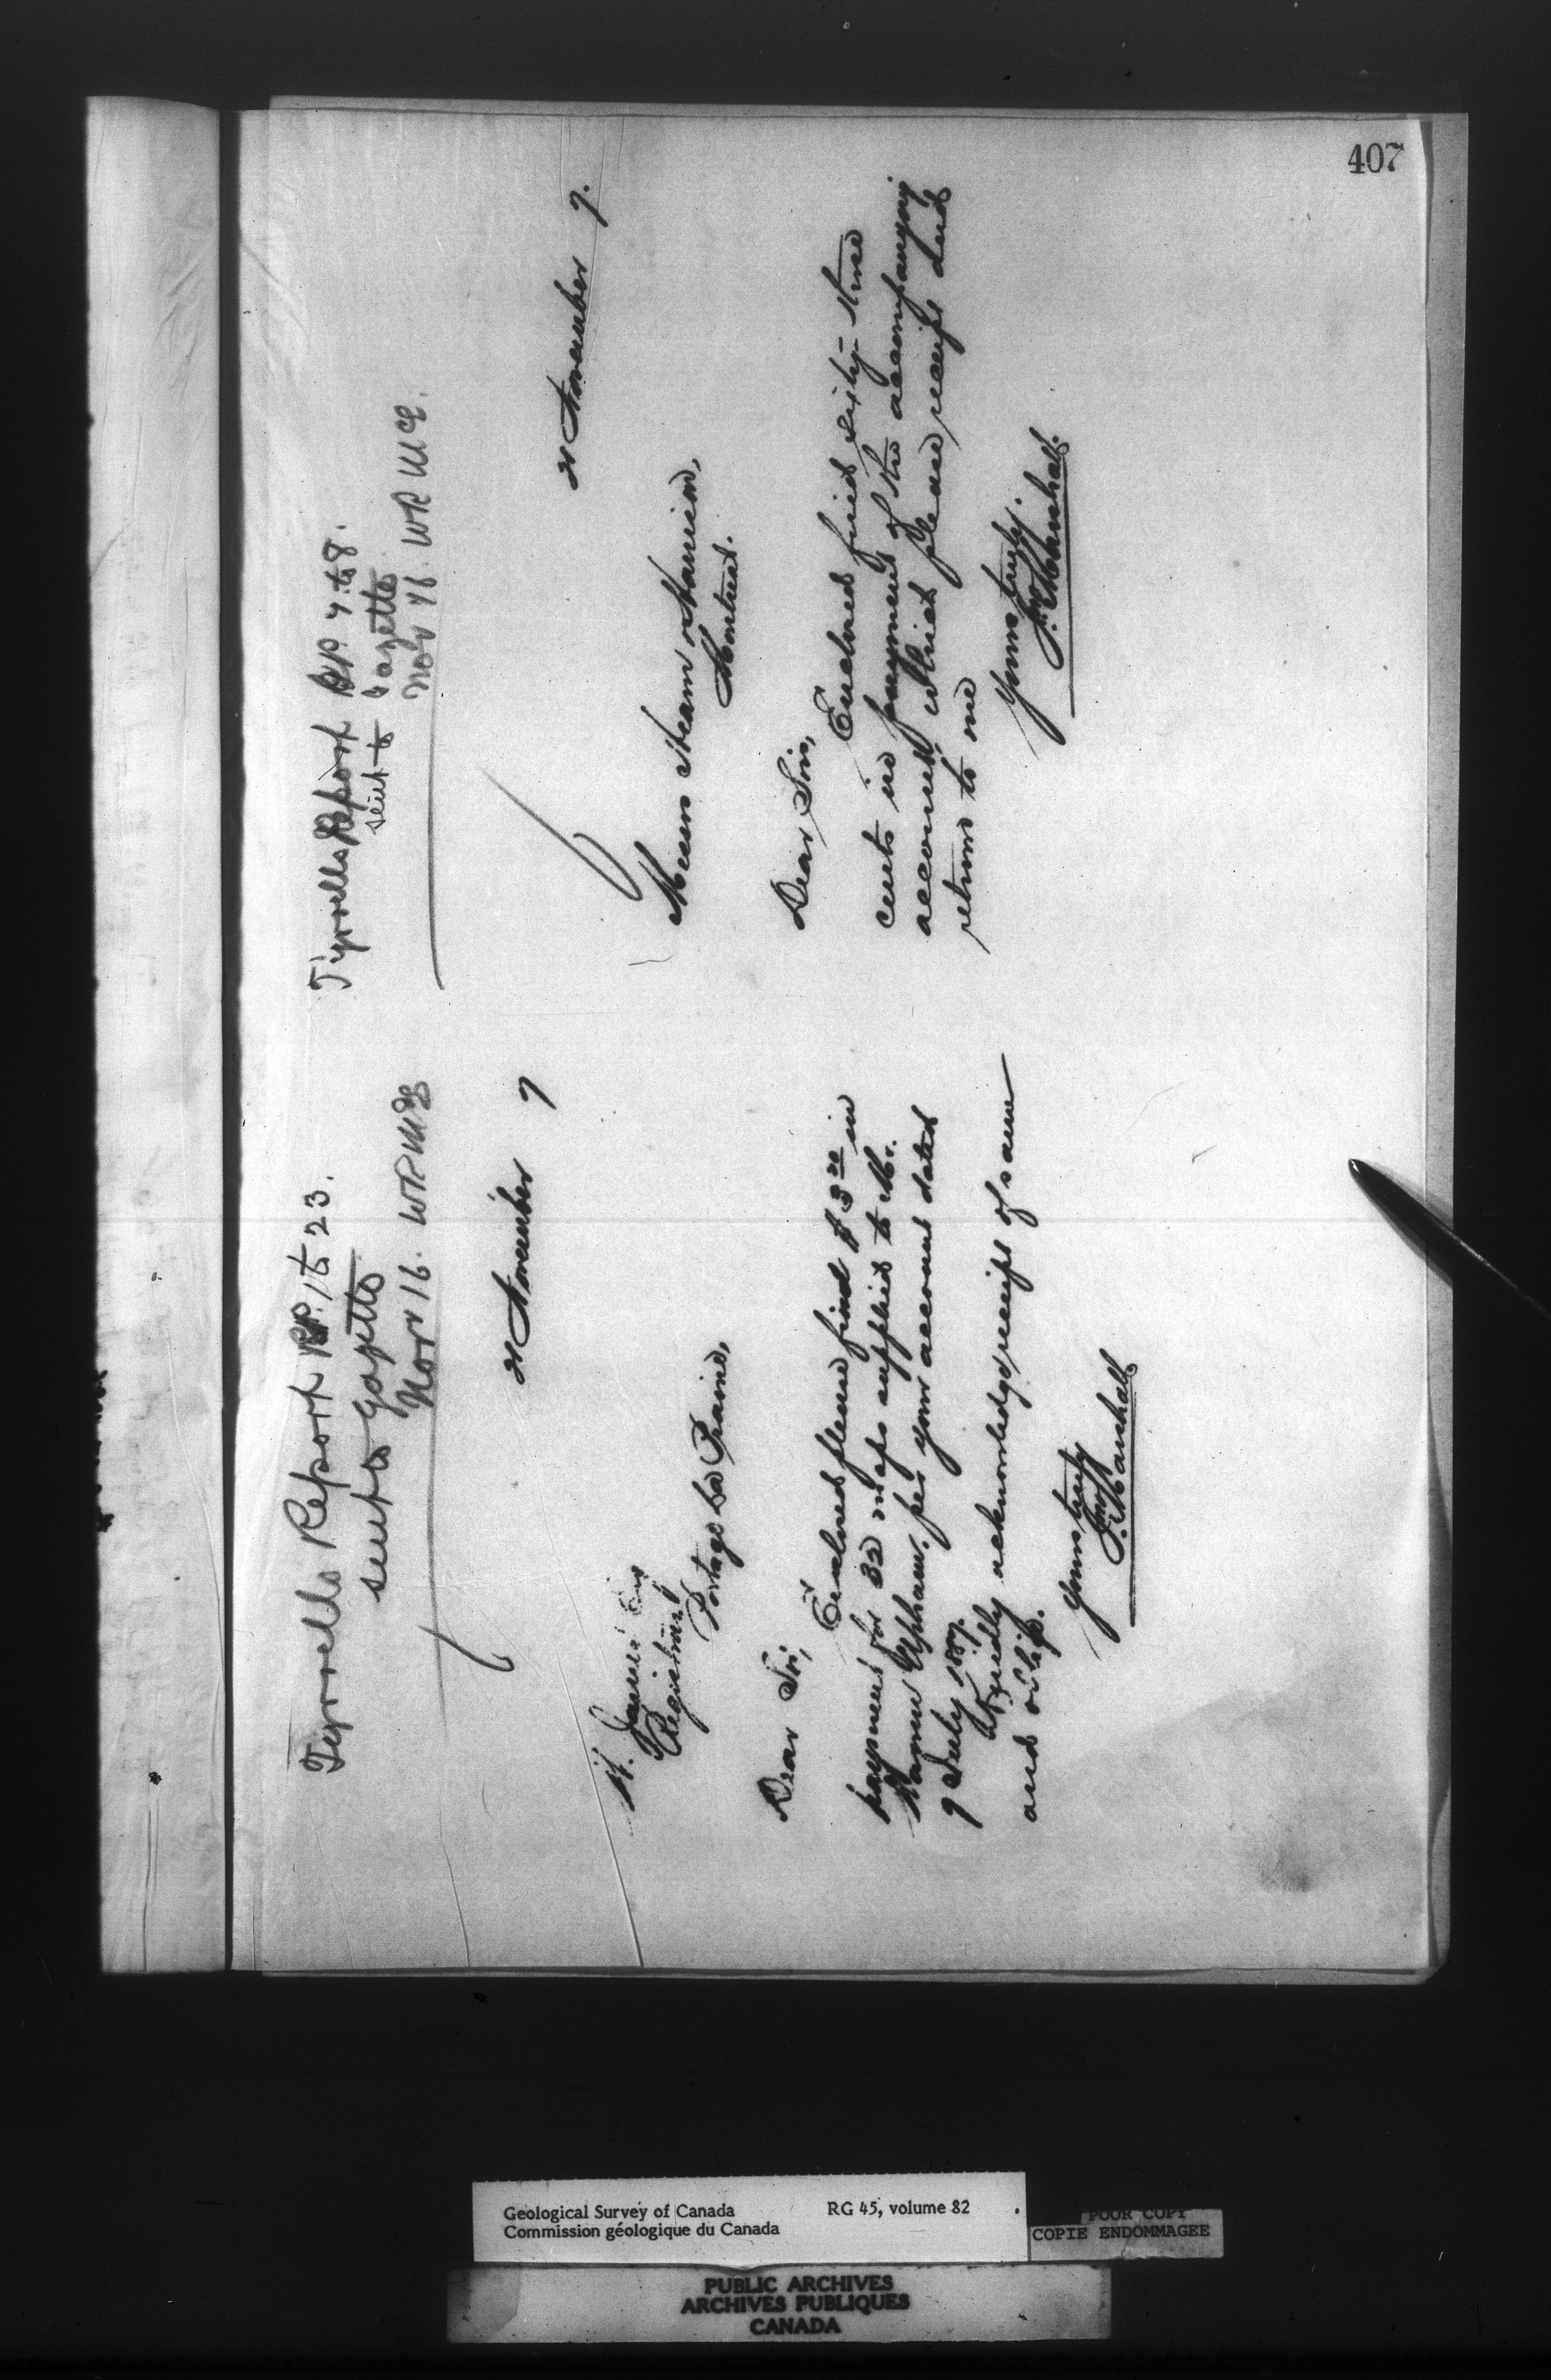 407
Tyrrells Report PP. 1 to 23.
sent to Gazette
Nov 16. WRMcE
21 November 7
H. James Esq
Registrar
Portage La Prairie,
Dear Sir,
Enclosed please find $3 20 in
payment for 32 maps supplied to Mr.
Warren Upham. per your account dated
9 July 1887.
Kindly acknowledge receipt of same
and oblige.
Yours truly
Jno Marshall
Tyrrells Report PP. 4 to 8.
sent to Gazette
Nov 16. WRMcE.
21 November 7.
Messrs Hearn & Harrison,
Montreal.
Dear Sirs,
Enclosed find sixty-three
cents in payment of the accompanying
account which please receipt and
return to me
Yours truly.
Jno Marshall.
Geological Survey of Canada RG 45, volume 82
Commission géologique du Canada
POOR COPY
COPIE ENDOMMAGEE
PUBLIC ARCHIVES
ARCHIVES PUBLIQUES
CANADA